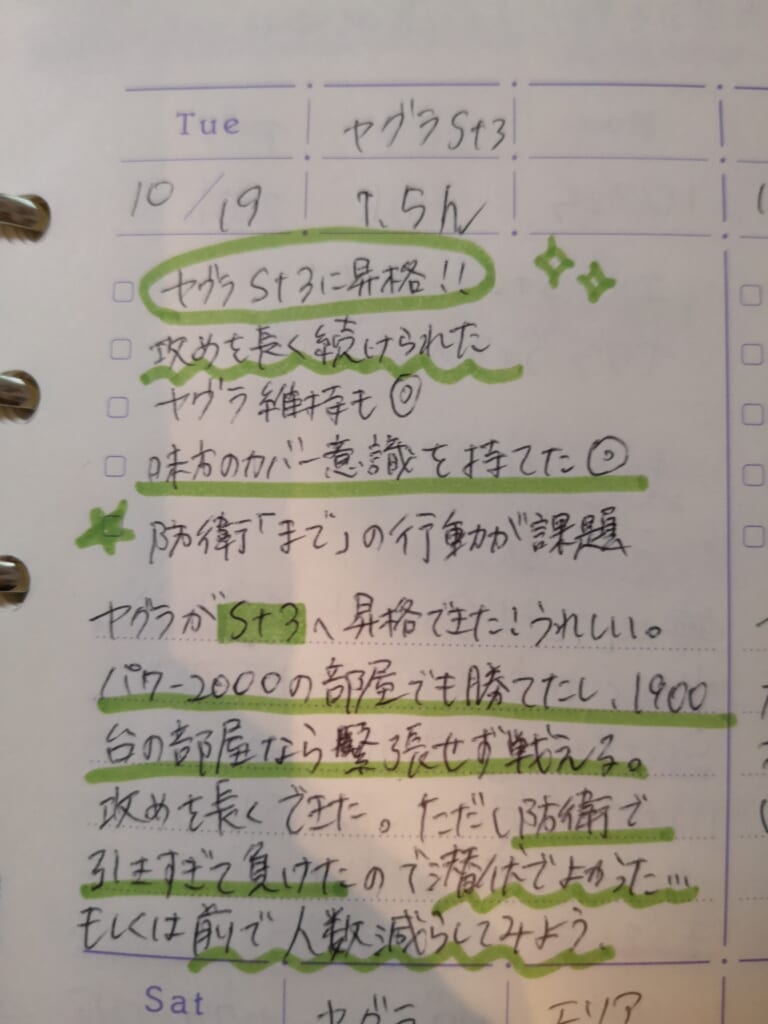 Tue ヤグラ S+3
10/19 1.5h
ヤグラ S+3に昇格!!
攻めを長く続けられた
ヤグラ維持も◎
味方のカバー意識を持てた◎
防衛「まで」の行動が課題
ヤグラがS+3へ昇格できた!うれしい。
パワー2000の部屋でも勝てたし、1900
台の部屋なら緊張せず戦える。
攻めを長くできた。ただし防衛で
引きすぎて負けたので潜伏でよかった…
もしくは前で人数減らしてみよう。
Sat ヤグラ エリア